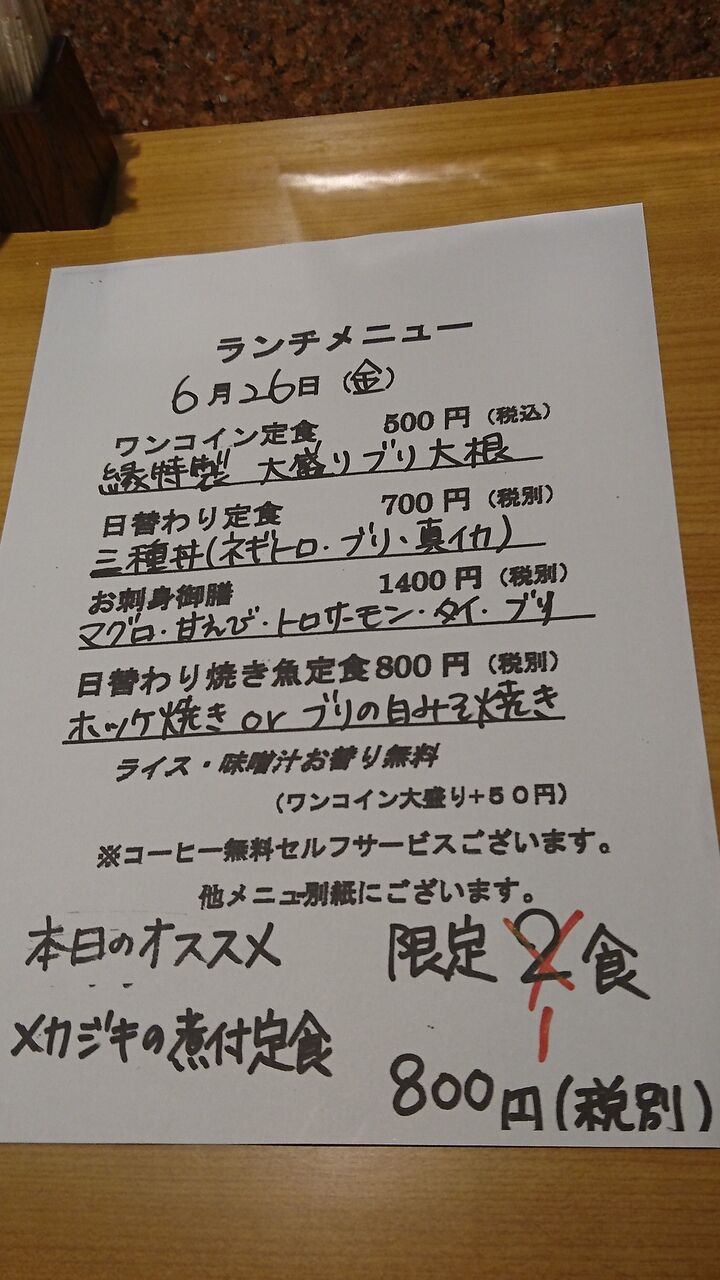 ランチメニュー
6月26日（金）
ワンコイン定食 500円（税込）
縁特製 大盛りブリ大根
日替わり定食 700円（税別）
三種丼(ネギトロ・ブリ、真イカ)
お刺身御膳 1400円（税別）
マグロ・甘えび・トロサーモン・タイ・ブリ
日替わり焼き魚定食800円（税別）
ホッケ焼き or ブリの白みそ焼き
ライス・味噌汁お替り無料
（ワンコイン大盛り+５０円）
※コーヒー無料セルフサービスございます。
他メニュー別紙にございます。
本日のオススメ 限定 2 食
1
メカジキの煮付定食
800円(税別)